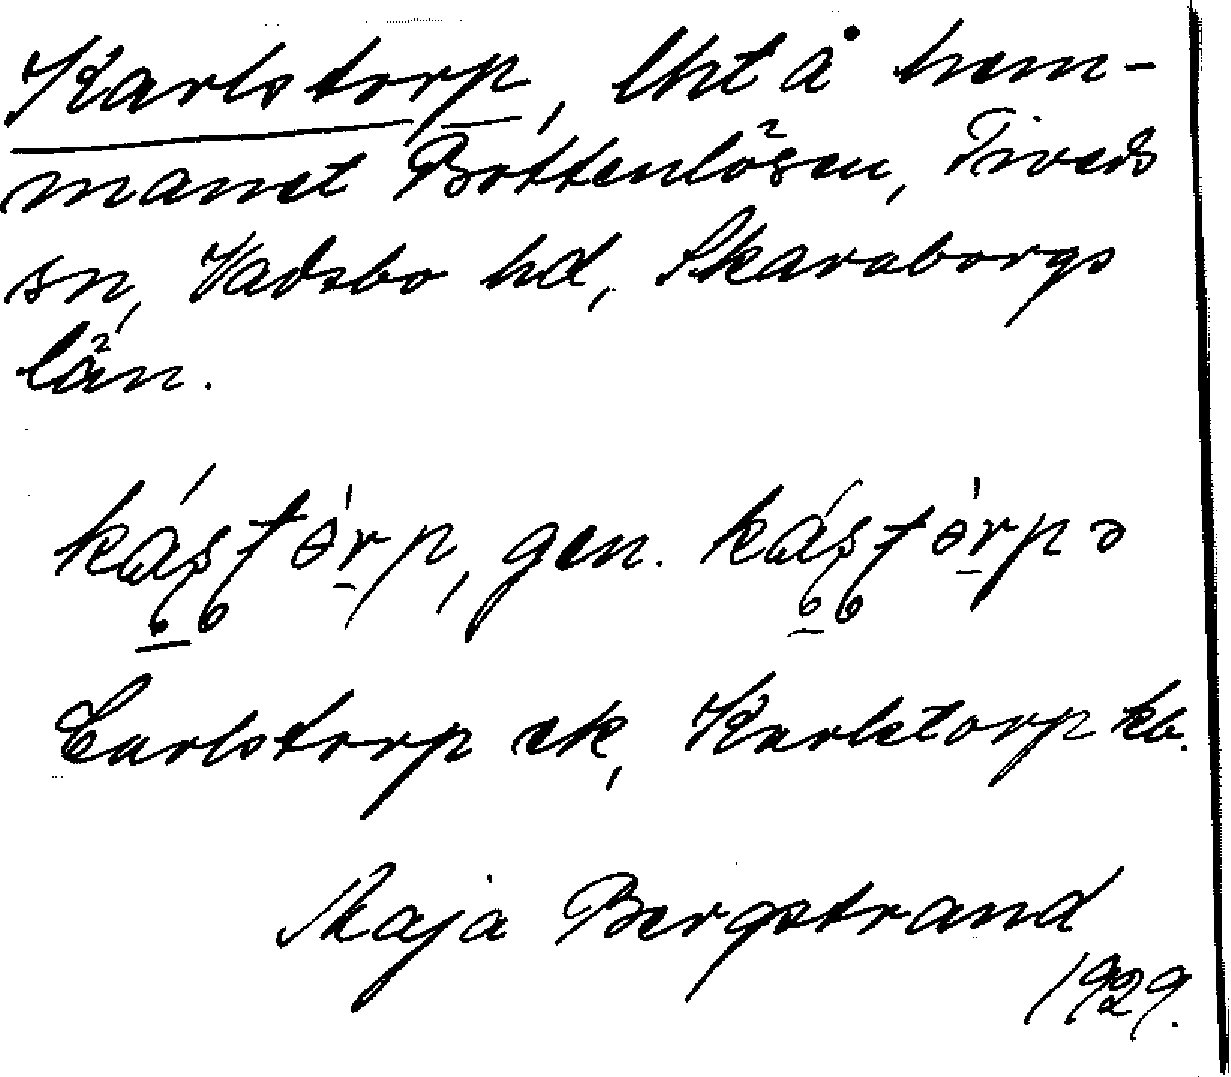 Karlstorp, lht å hem-
manet Bottenlösen, Tiveds
sn, Vadsbo hd, Skaraborgs
län.
gen.
Carlstorp ek, Karlstorp kb.
Maja Bergstrand
1929.